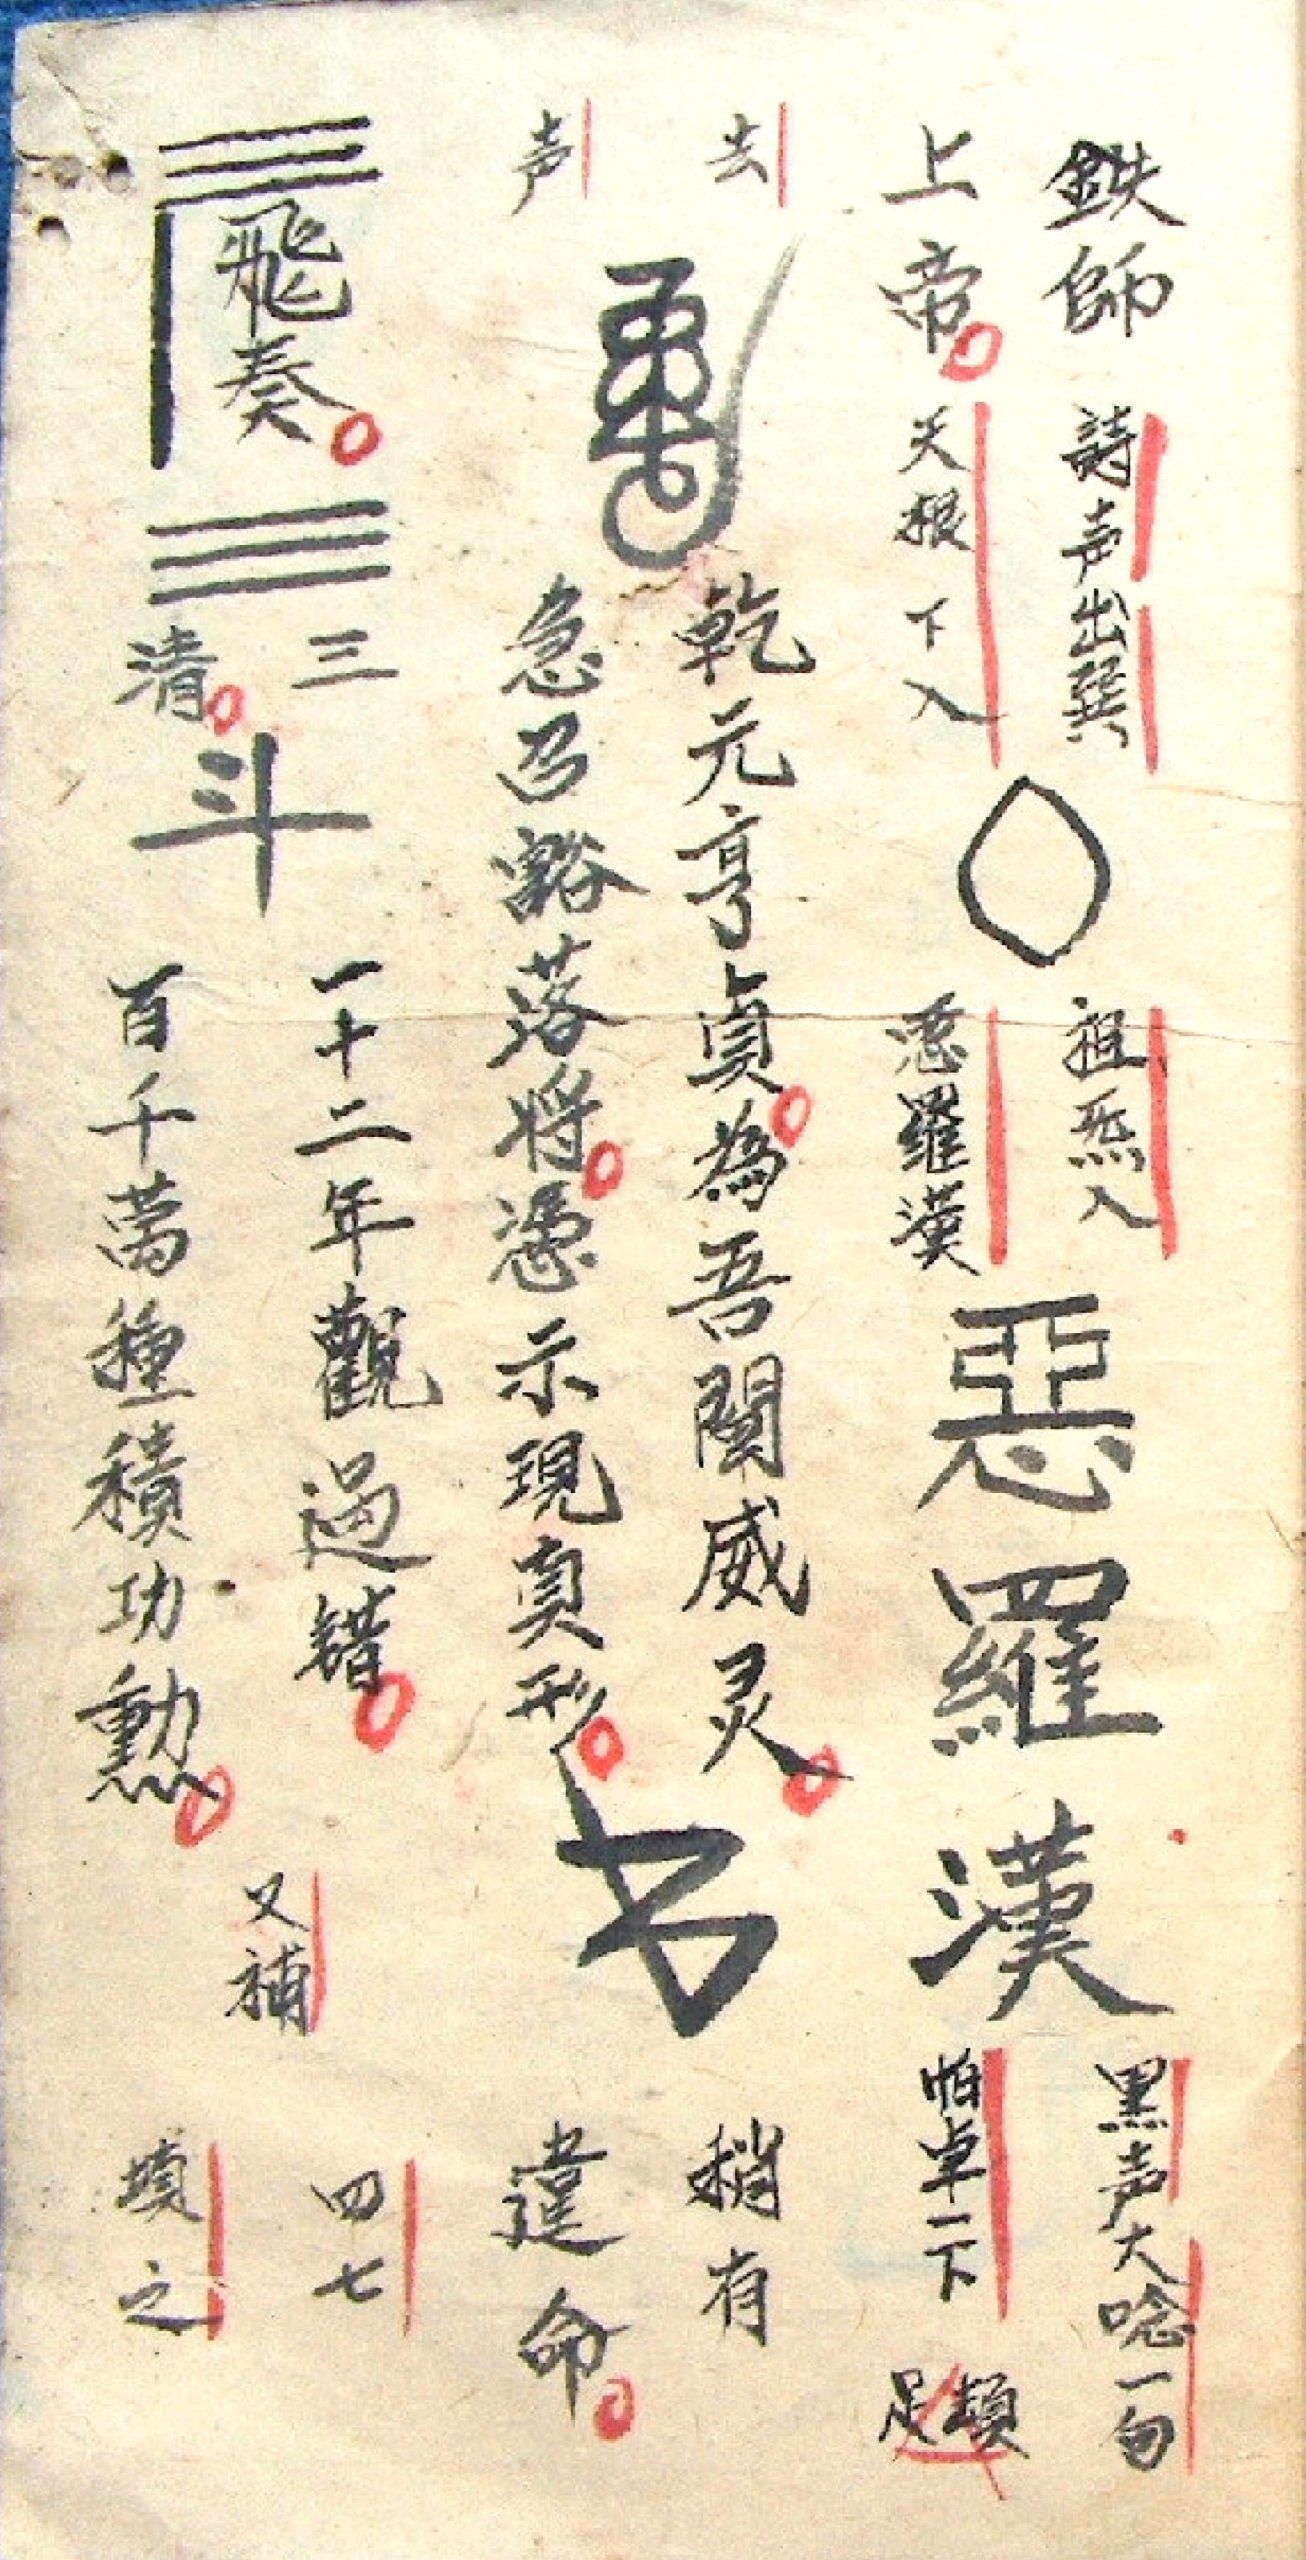 鉄師
上帝
詩声出巽
天根下入
祖炁入
惡羅漢
惡羅漢
黑声大唸一句
帕卓一下
頓足
去
声
乾元亨貞為吾闡威灵
急召豁落將憑示現真形
稍有
違命
飛奏
三
清
斗
一十二年觀過錯
百千萬種積功勳
又補
四七
填之